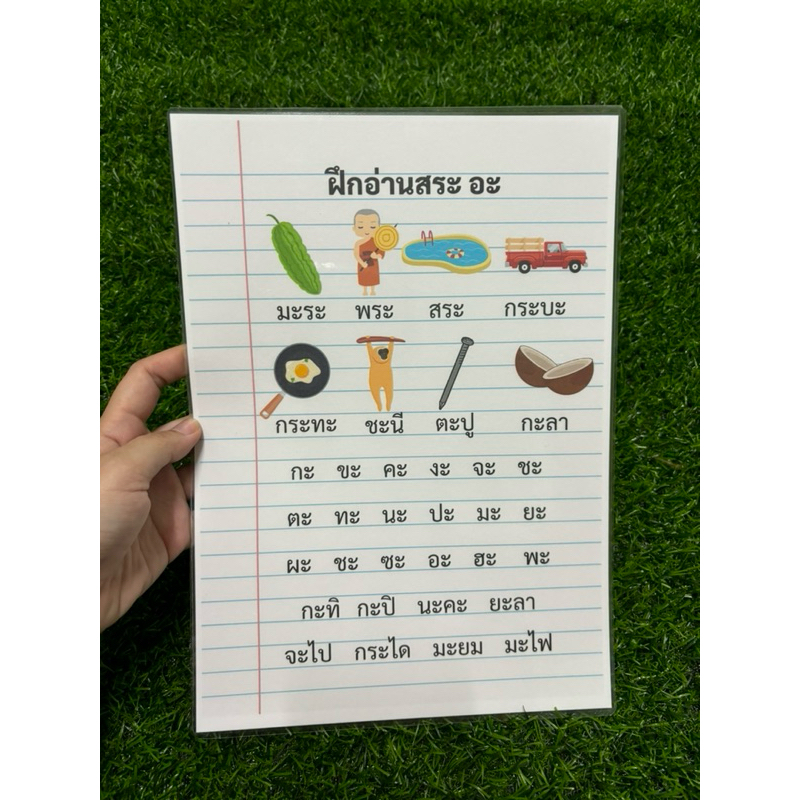 ฝึกอ่านสระ อะ
มะระ พระ สระ กระบะ
กระทะ ชะนี ตะปู กะลา
กะ ขะ คะ งะ จะ ชะ
ตะ ทะ นะ ปะ มะ ยะ
ผะ ชะ ซะ อะ ฮะ พะ
กะทิ กะปิ นะคะ ยะลา
จะไป กระได มะยม มะไฟ